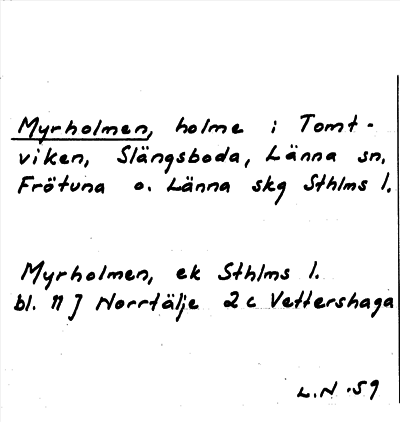 Myrholmen, holme i Tomt-
viken, Slängsboda, Länna sn,
Frötuna o. Länna skg Sthlms l.
Myrholmen, ek Sthlms l.
bl. 11 J Norrtälje 2c Vettershaga
L.N -59